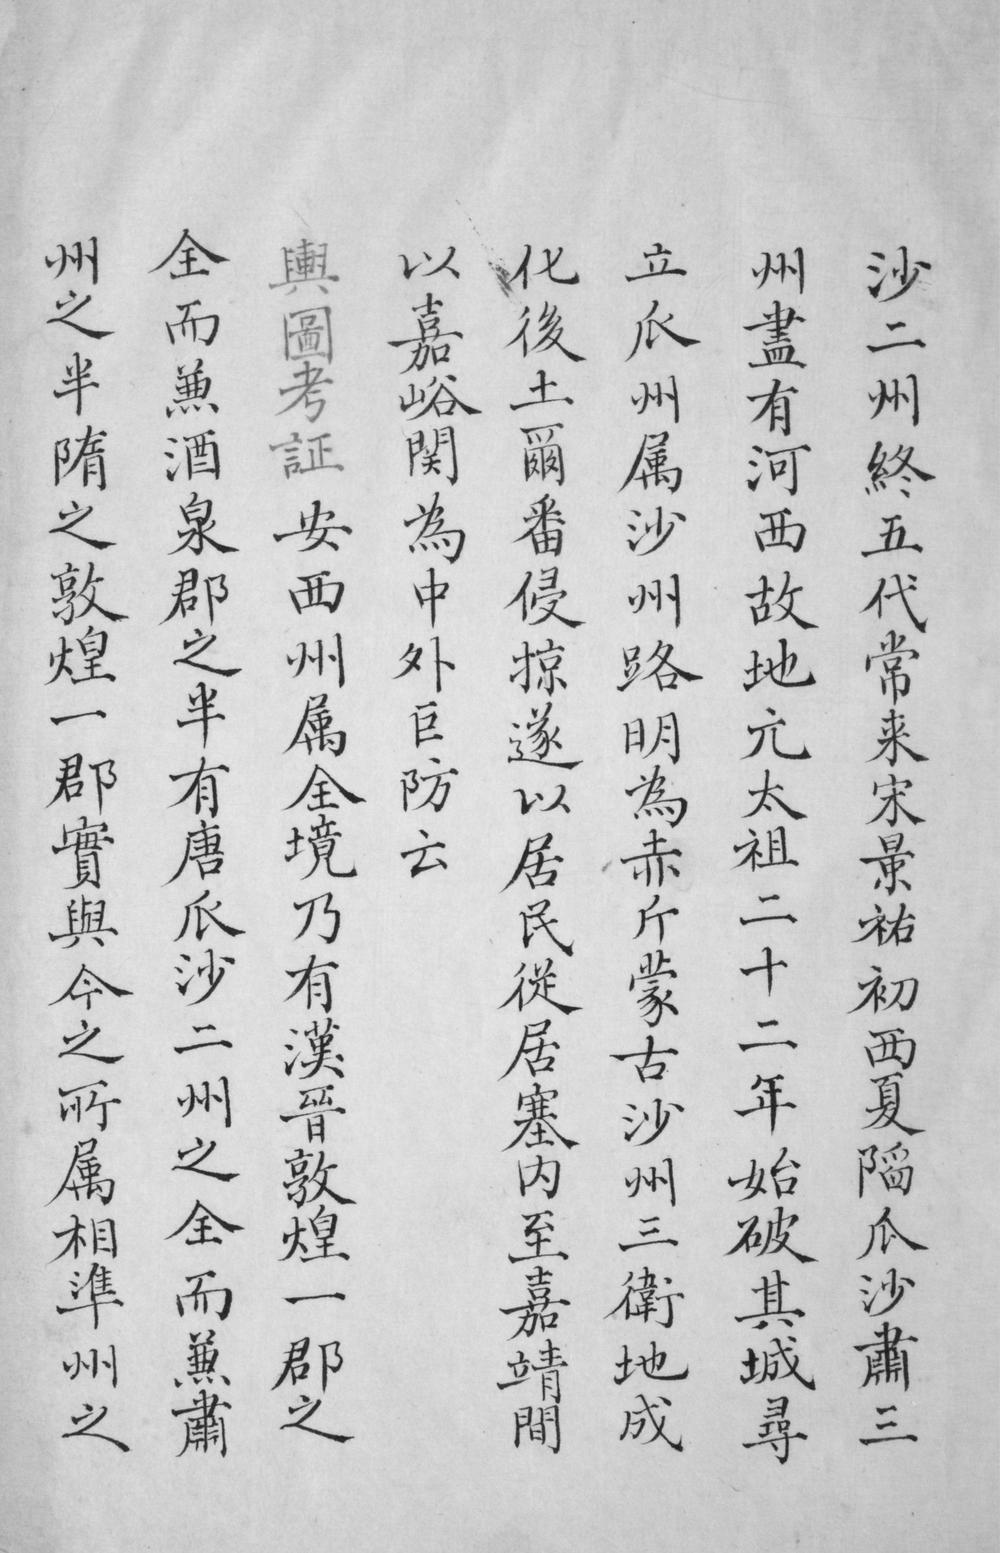 沙二州終五代常来宋景祐初西夏陷瓜沙肅三
州盡有河西故地亢太祖二十二年始破其城尋
立瓜州属沙州路明為赤斤蒙古沙州三衛地成
化後土爾番侵掠遂以居民從居塞内至嘉靖間
以嘉峪関為中外巨防云
輿圖考証安西州属全境乃有漢晉敦煌一郡之
全而兼酒泉郡之半有唐瓜沙二州之全而兼肅
州之半隋之敦煌一郡實與今之所属相準州之